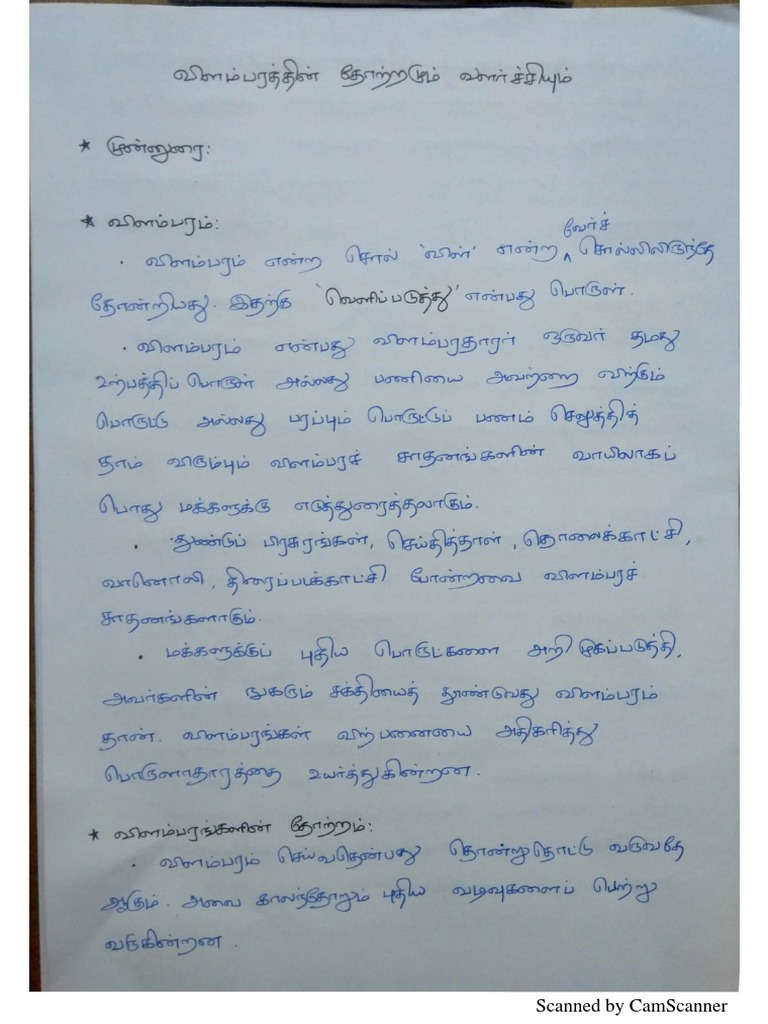 விளம்பரத்தின் தோற்றமும் வளர்ச்சியும்
* முன்னுரை:
* விளம்பரம்:
வேர்ச்
• விளம்பரம் என்ற சொல் 'விள்' என்ற ^ சொல்லிலிருந்தே
தோன்றியது. இதற்கு 'வெளிப்படுத்து' என்பது பொருள்.
• விளம்பரம் என்பது விளம்பரதாரர் ஒருவர் தமது
உற்பத்திப் பொருள் அல்லது பணியை அவற்றை விற்கும்
பொருட்டு அல்லது பரப்பும் பொருட்டுப் பணம் செலுத்தித்
தாம் விரும்பும் விளம்பரச் சாதனங்களின் வாயிலாகப்
பொது மக்களுக்கு எடுத்துரைத்தலாகும்.
• துண்டுப் பிரசுரங்கள், செய்தித்தாள், தொலைக்காட்சி,
வானொலி, திரைப்படக்காட்சி போன்றவை விளம்பரச்
சாதனங்களாகும்.
• மக்களுக்குப் புதிய பொருட்களை அறிமுகப்படுத்தி,
அவர்களின் நுகரும் சக்தியைத் தூண்டுவது விளம்பரம்
தான். விளம்பரங்கள் விற்பனையை அதிகரித்து
பொருளாதாரத்தை உயர்த்துகின்றன.
* விளம்பரங்களின் தோற்றம்:
• விளம்பரம் செய்வதென்பது தொன்றுதொட்டு வருவதே
ஆகும். அவை காலந்தோறும் புதிய வடிவுகளைப் பெற்று
வருகின்றன.
Scanned by CamScanner